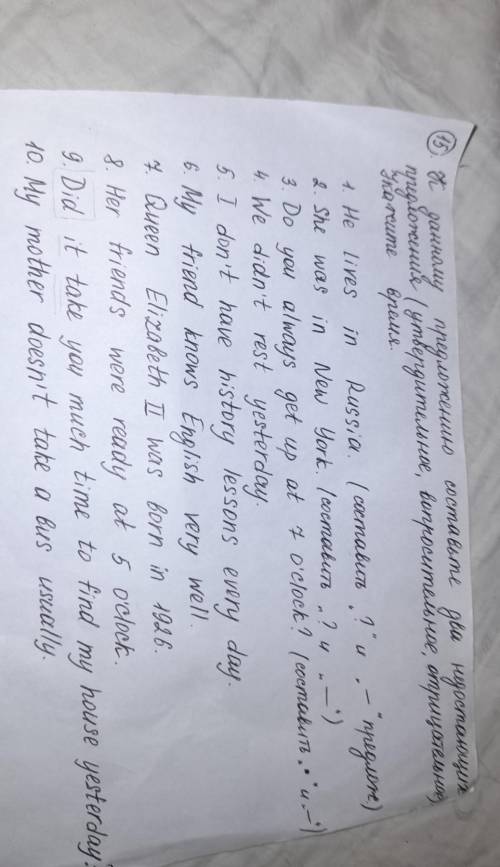 15. К данному предложению составьте два недостающих
предложения (утвердительное, вопросительное, отрицательное)
Укажите время.
1. He lives in Russia. (составить „?" и „—" предлож.)
2. She was in New York. (составить „? и „—")
3. Do you always get up at 7 o'clock? (составить „." и „—")
4. We didn't rest yesterday.
5. I don't have history lessons every day.
6. My friend knows English very well.
7. Queen Elizabeth II was born in 1926.
8. Her friends were ready at 5 o'clock.
9. Did it take you much time to find my house yesterday?
10. My mother doesn't take a bus usually.